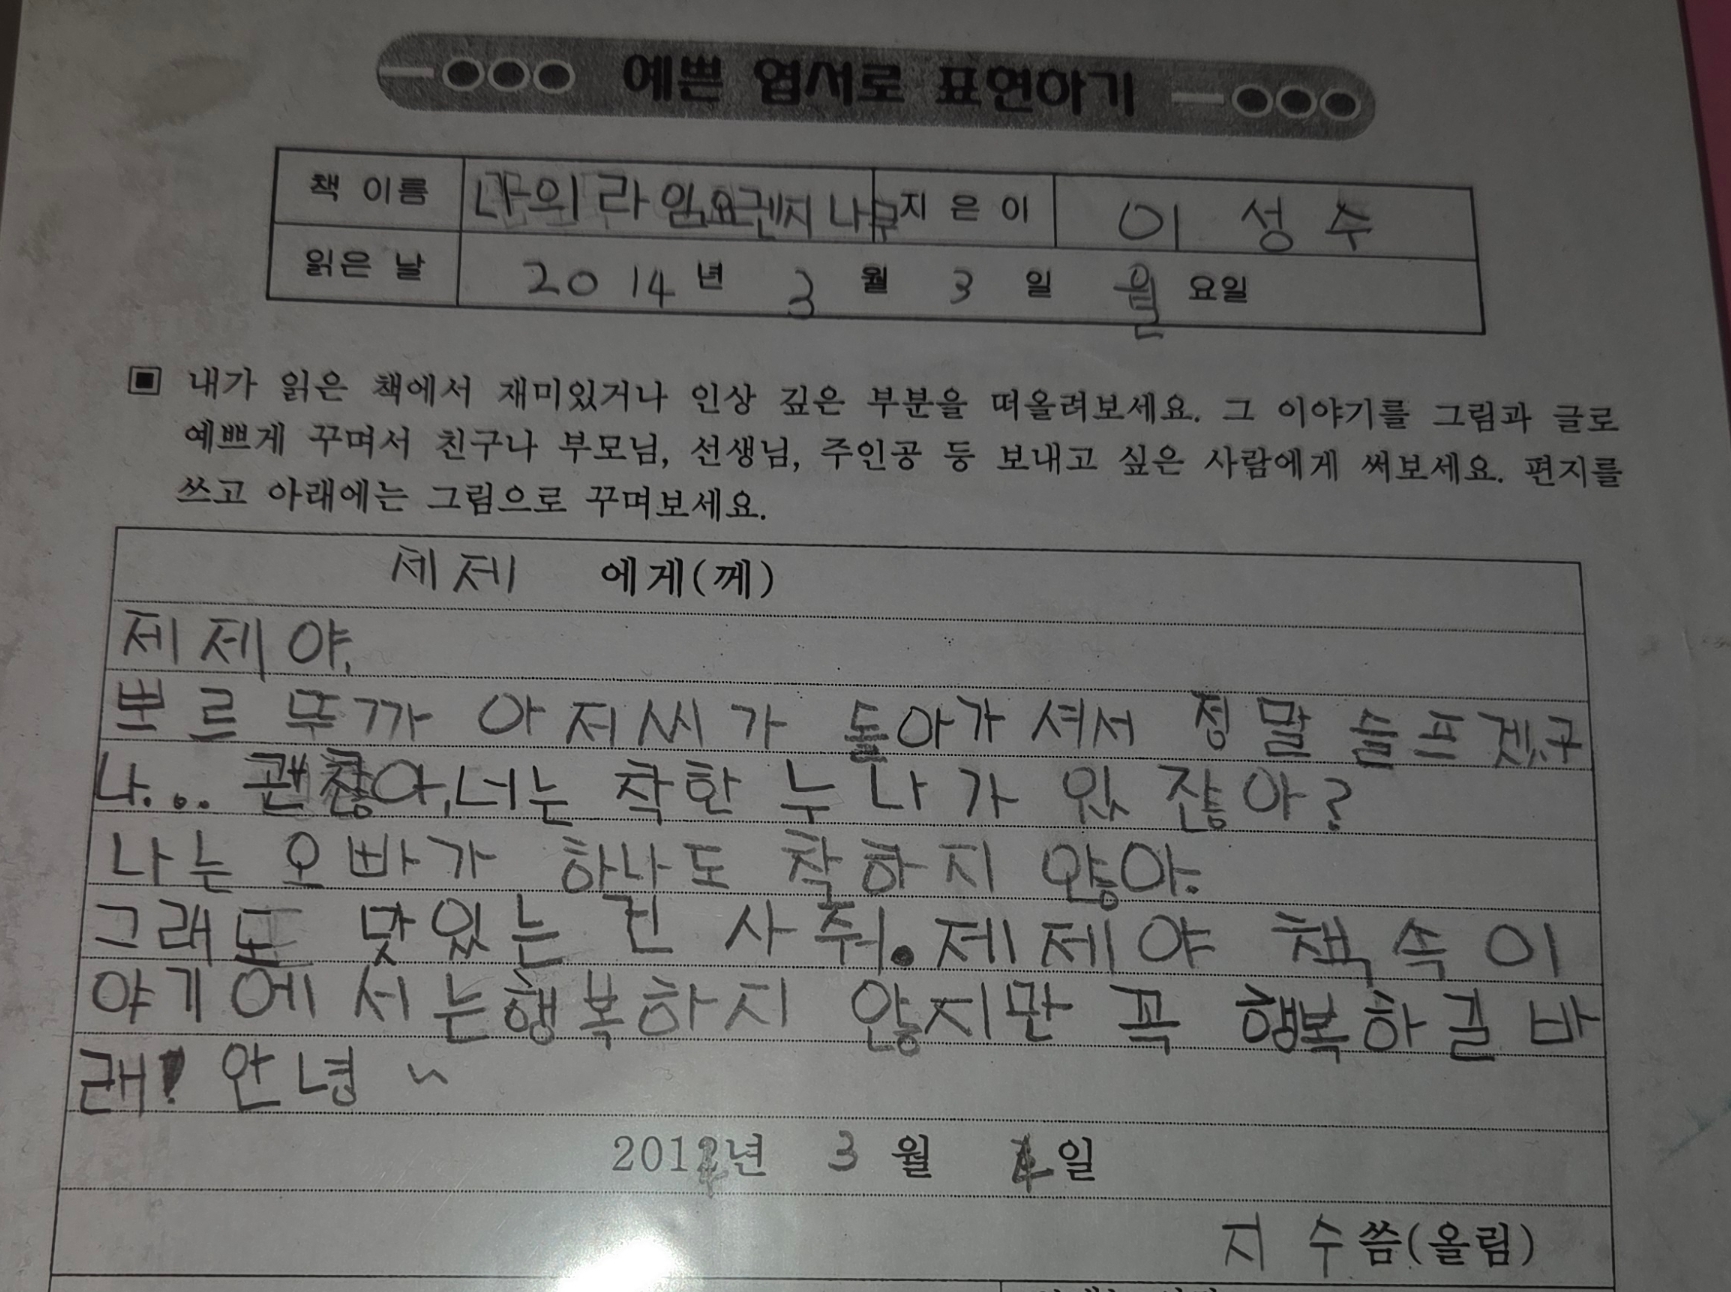 예쁜 엽서로 표현하기
책 이름 나의라임오렌지나무 지은이 이성수
읽은 날 2014년 3월 3일 월요일
▣ 내가 읽은 책에서 재미있거나 인상 깊은 부분을 떠올려보세요. 그 이야기를 그림과 글로
예쁘게 꾸며서 친구나 부모님, 선생님, 주인공 등 보내고 싶은 사람에게 써보세요. 편지를
쓰고 아래에는 그림으로 꾸며보세요.
제제 에게(께)
제제야,
뽀르뚜까 아저씨가 돌아가셔서 정말 슬프겠구
나... 괜찮아, 너는 착한 누나가 있잖아?
나는 오빠가 하나도 착하지 않아.
그래도 맛있는 건 사줘. 제제야 책 속 이
야기에서는 행복하지 않지만 꼭 행복하길 바
래! 안녕~
2014년 3월 일
지수 씀(올림)